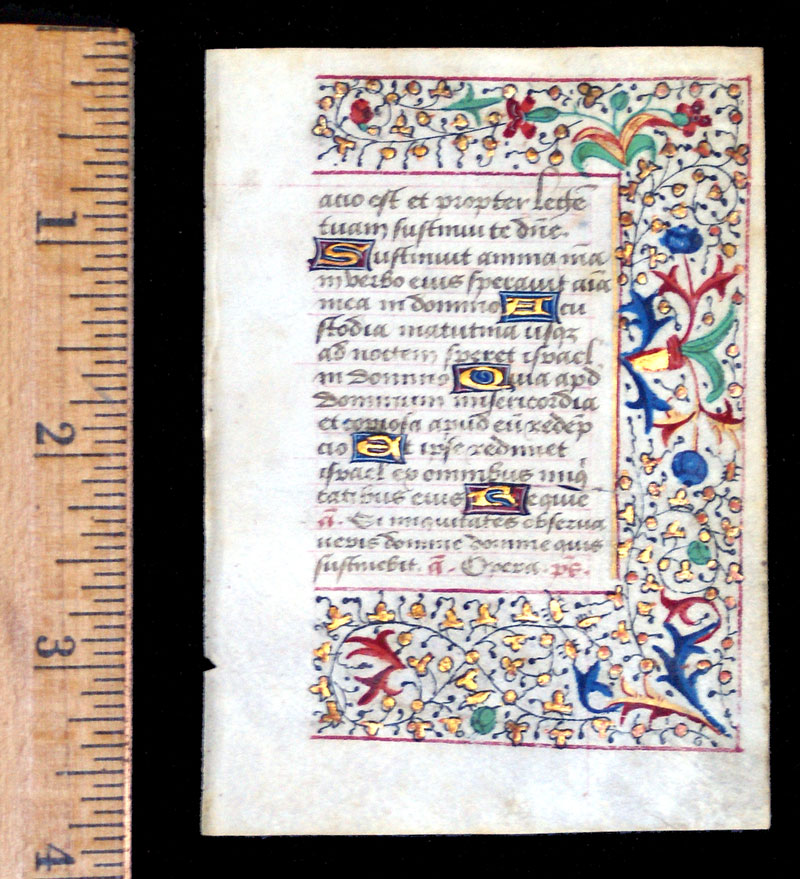 1
2
3
4
atio est et propter legē
tuam sustinui te dn̄e.
Sustinuit anima m̄a
in verbo eius speravit aīa
mea in domino A cu
stodia matutina usqꝫ
ad noctem speret israel
in domino Quia apd
dominum misericordia
et copiosa apud eū redēp
cio Et ipse redimet
israel ex omnibus iniq̇
tatibus eius Requiē
ā. Si iniquitates observa
veris domine domine quis
sustinebit. ā. Opera. ps.